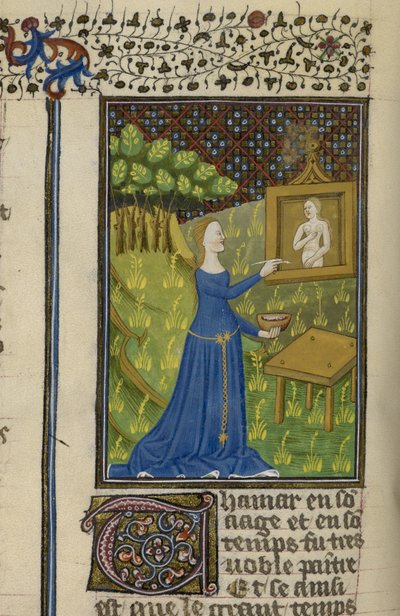 Thamar en sō
aage et en sō
temps fu tres
noble paītre
Et se ainsi
est que le grant temps